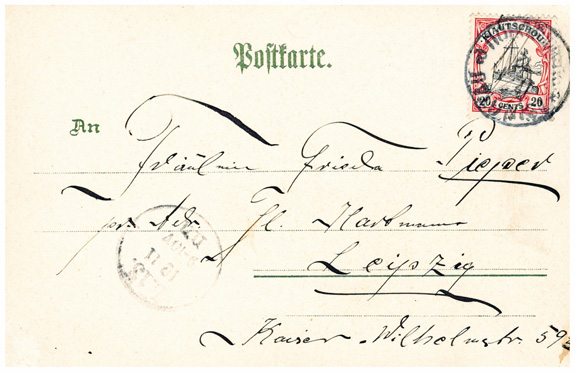 Postkarte.
KIAUTSCHOU
20 CENTS 20
An
Fräulein Frieda Pieper
pr. Adr. Fl. Hartmann
Leipzig
Kaiser-Wilhelmstr. 59